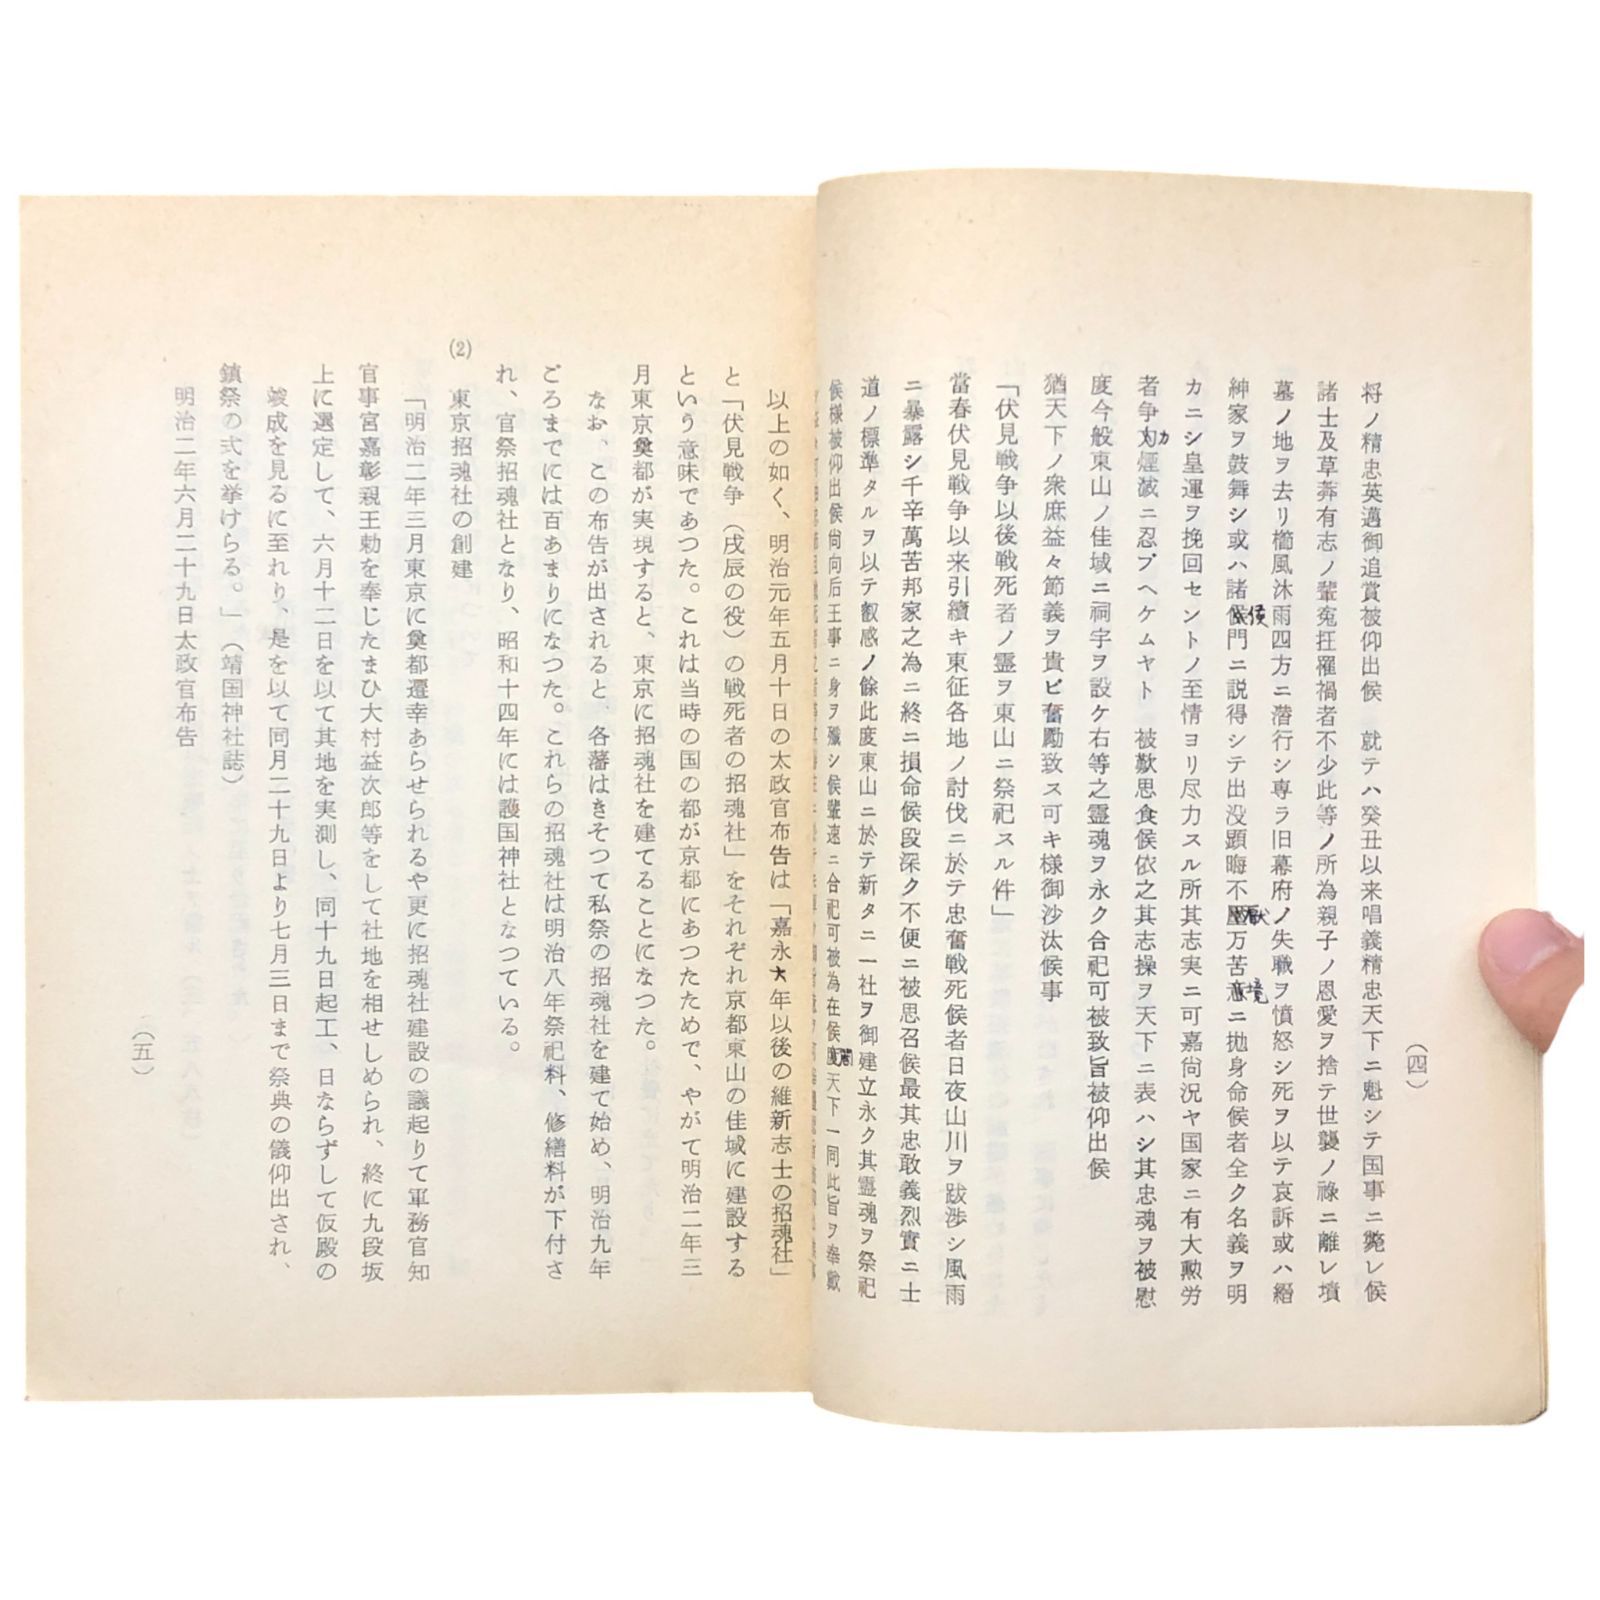 (四)
将ノ精忠英邁御追賞被仰出候　就テハ癸丑以来唱義精忠天下ニ魁シテ国事ニ斃レ候
諸士及草莽有志ノ輩寃抂羅禍者不少此等ノ所為親子ノ恩愛ヲ捨テ世襲ノ祿ニ離レ墳
墓ノ地ヲ去リ櫛風沐雨四方ニ潜行シ専ラ旧幕府ノ失職ヲ憤怒シ死ヲ以テ哀訴或ハ縉
紳家ヲ鼓舞シ或ハ諸侯門ニ説得シテ出没顕晦不厭万苦境ニ抛身命候者全ク名義ヲ明
カニシ皇運ヲ挽回セントノ至情ヨリ尽力スル所其志実ニ可嘉尚況ヤ国家ニ有大勲労
者争カ煙滅ニ忍ブヘケムヤト　被歎思食候依之其志操ヲ天下ニ表ハシ其忠魂ヲ被慰
度今般東山ノ佳域ニ祠宇ヲ設ケ右等之霊魂ヲ永ク合祀可被致旨被仰出候
猶天下ノ衆庶益々節義ヲ貴ビ奮勵致ス可キ様御沙汰候事
「伏見戦争以後戦死者ノ霊ヲ東山ニ祭祀スル件」
當春伏見戦争以来引續キ東征各地ノ討伐ニ於テ忠奮戦死候者日夜山川ヲ跋渉シ風雨
ニ暴露シ千辛萬苦邦家之為ニ終ニ損命候段深ク不便ニ被思召候最其忠敢義烈實ニ士
道ノ標準タルヲ以テ叡感ノ餘此度東山ニ於テ新タニ一社ヲ御建立永ク其霊魂ヲ祭祀
候様被仰出候尚向后王事ニ身ヲ殲シ候輩速ニ合祀可被為在候間天下一同此旨ヲ奉戴
以上の如く、明治元年五月十日の太政官布告は「嘉永六年以後の維新志士の招魂社」
と「伏見戦争（戌辰の役）の戦死者の招魂社」をそれぞれ京都東山の佳域に建設する
という意味であつた。これは当時の国の都が京都にあつたためで、やがて明治二年三
月東京奠都が実現すると、東京に招魂社を建てることになつた。
なお、この布告が出されると、各藩はきそつて私祭の招魂社を建て始め、明治九年
ごろまでには百あまりになつた。これらの招魂社は明治八年祭祀料、修繕料が下付さ
れ、官祭招魂社となり、昭和十四年には護国神社となつている。
(2)　東京招魂社の創建
「明治二年三月東京に奠都遷幸あらせられるや更に招魂社建設の議起りて軍務官知
官事宮嘉彰親王勅を奉じたまひ大村益次郎等をして社地を相せしめられ、終に九段坂
上に選定して、六月十二日を以て其地を実測し、同十九日起工、日ならずして仮殿の
竣成を見るに至れり、是を以て同月二十九日より七月三日まで祭典の儀仰出され、
鎮祭の式を挙けらる。」（靖国神社誌）
明治二年六月二十九日太政官布告
(五)